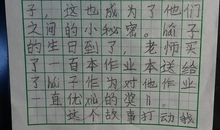 子，这也成为了他们
之间的小秘密。胎子
的生日到了，老师买
了一百本作业本送给
了胎子作为对他作业
一直优秀的奖
这个故事打动我